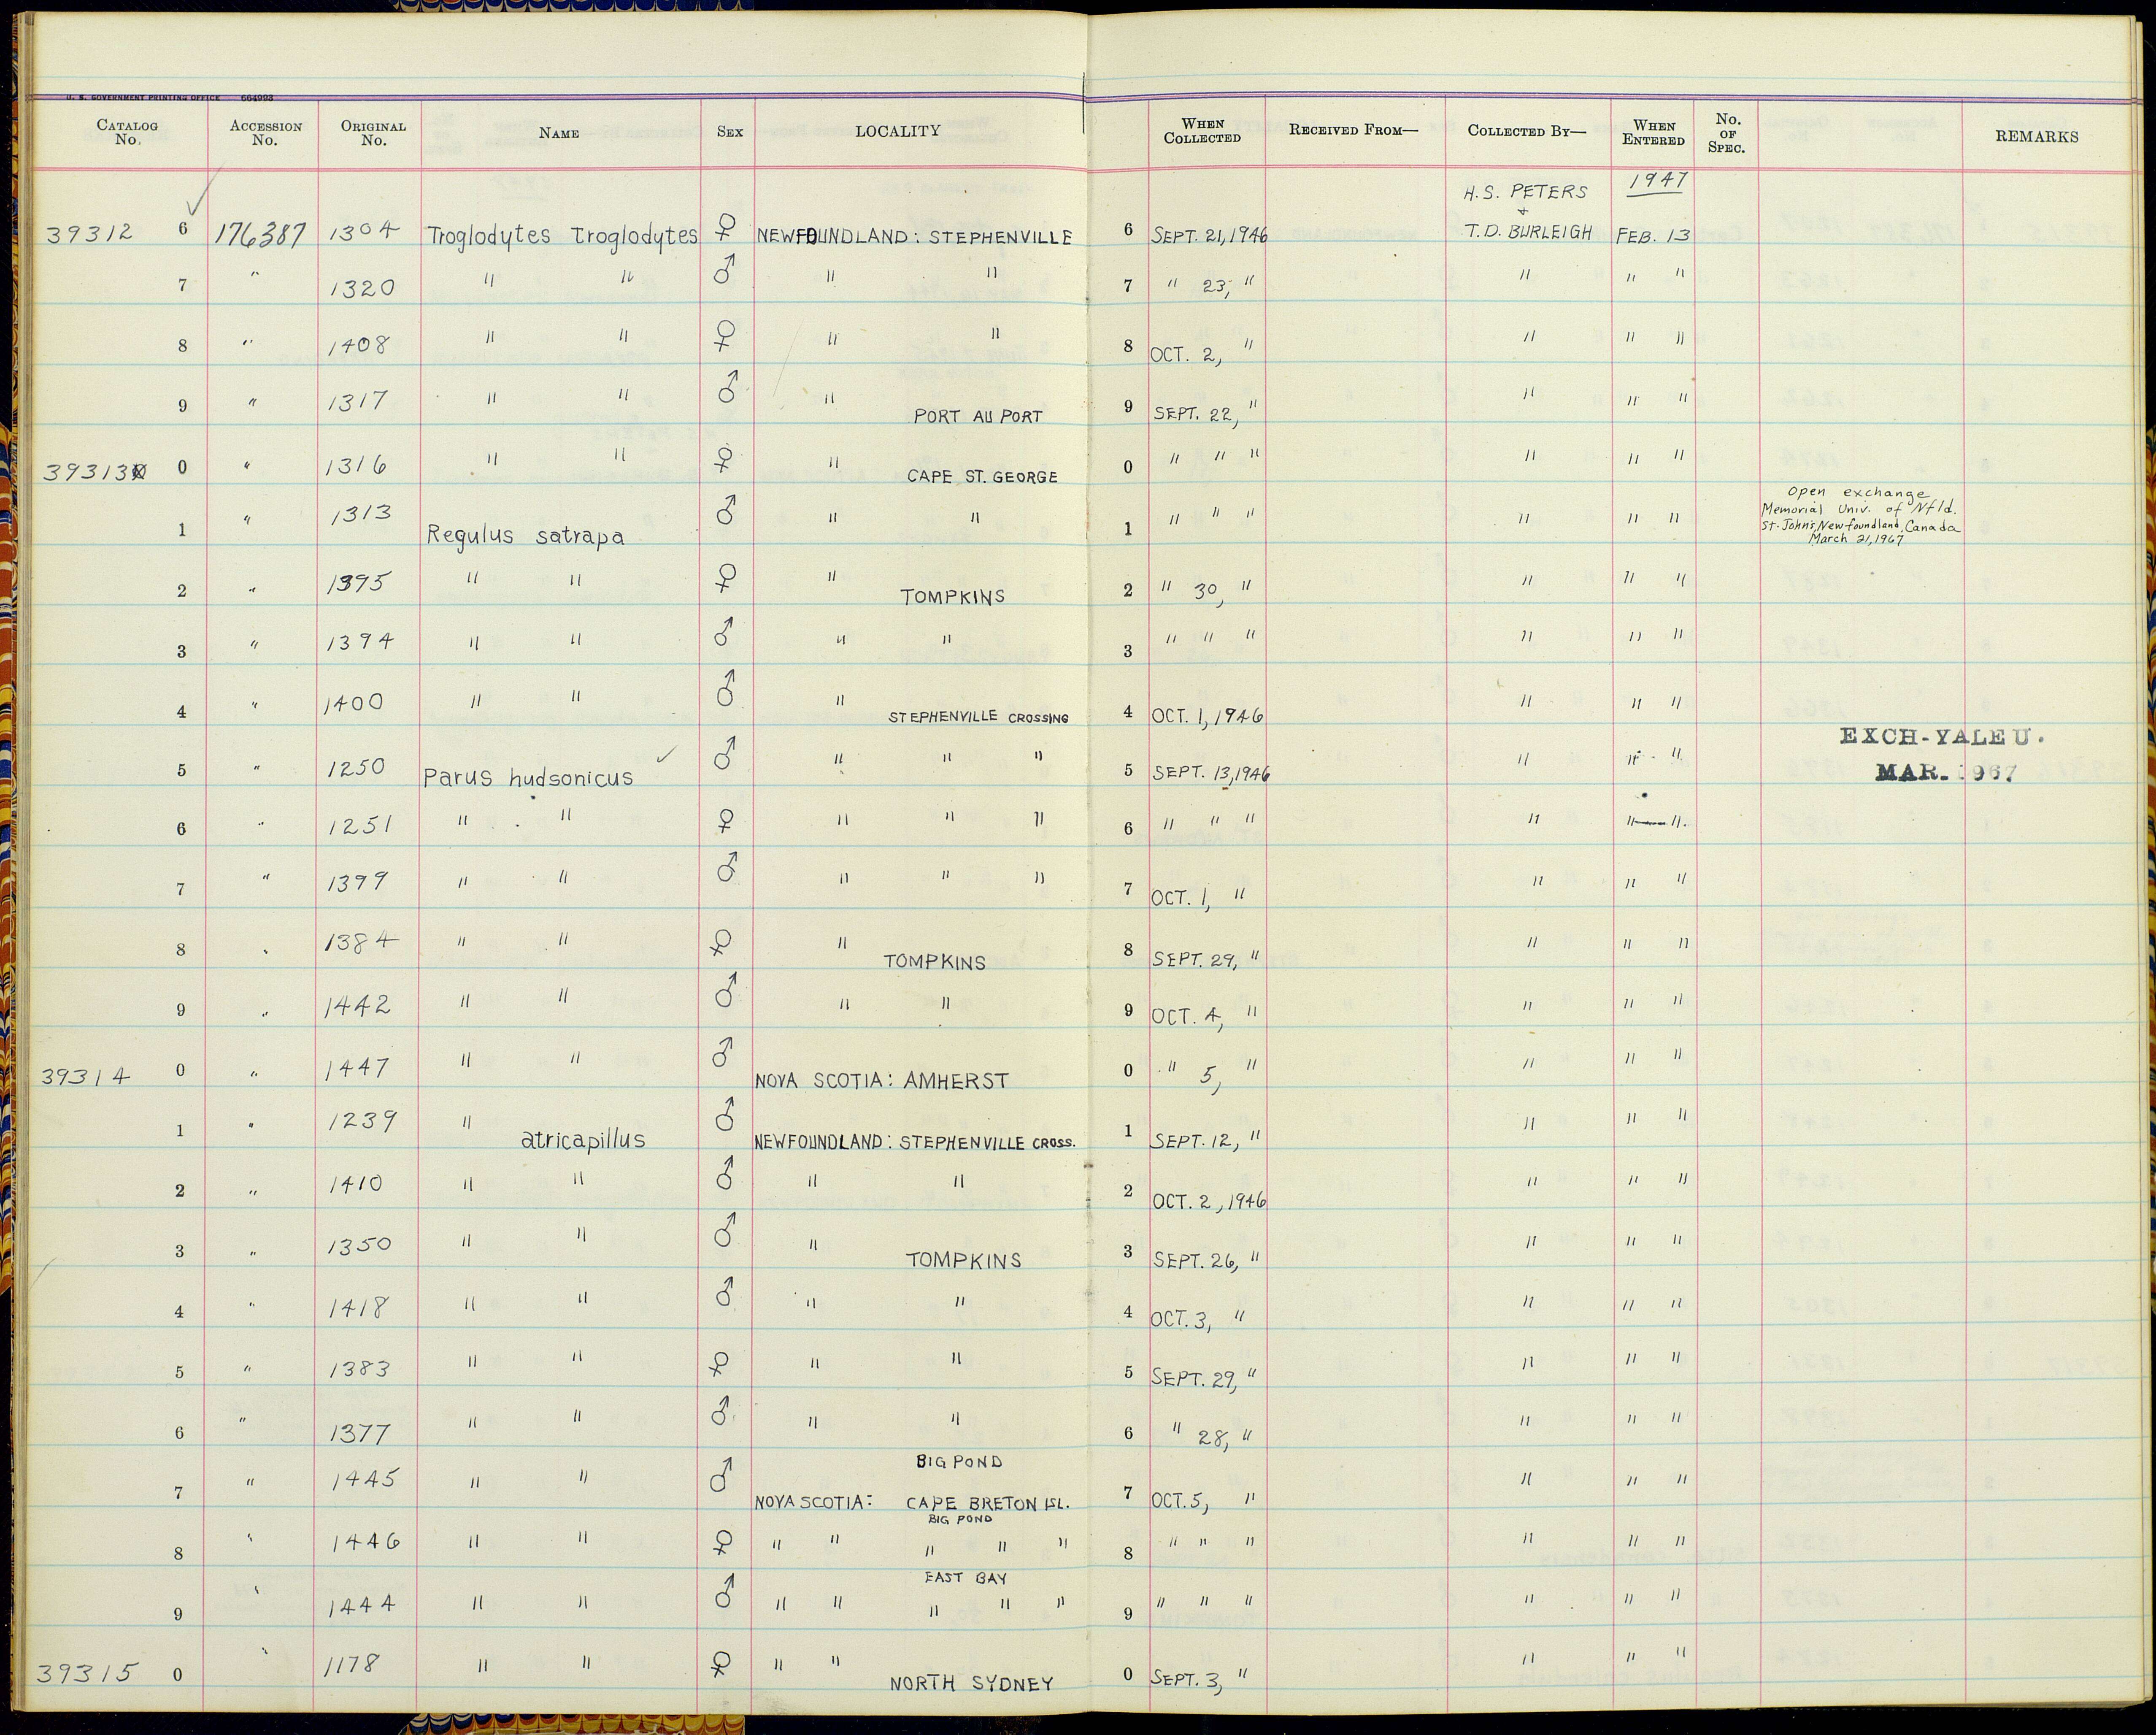 U. S. GOVERNMENT PRINTING OFFICE 664993
CATALOG No. ACCESSION No. ORIGINAL No. NAME SEX LOCALITY WHEN COLLECTED RECEIVED FROM— COLLECTED BY— WHEN ENTERED No. OF SPEC. REMARKS
H.S. PETERS 1947
39312 6 176387 1304 Troglodytes troglodytes ♀ NEWFOUNDLAND: STEPHENVILLE 6 SEPT. 21, 1946 + T.D. BURLEIGH FEB. 13
7 " 1320 " " ♂ " " 7 " 23, " " " "
8 " 1408 " " ♀ " " 8 OCT. 2, " " " "
9 " 1317 " " ♂ " PORT AU PORT 9 SEPT. 22, " " " "
39313 0 " 1316 " " ♀ " CAPE ST. GEORGE 0 " " " " " "
1 " 1313 Regulus satrapa ♂ " " 1 " " " " " " Open exchange
Memorial Univ. of Nfld.
St. John's, Newfoundland, Canada
March 21, 1967
2 " 1395 " " ♀ " TOMPKINS 2 " 30, " " " "
3 " 1394 " " ♂ " " 3 " " " " " "
4 " 1400 " " ♂ " STEPHENVILLE CROSSING 4 OCT. 1, 1946 " " "
5 " 1250 Parus hudsonicus ✓ ♂ " " " 5 SEPT. 13, 1946 " " " EXCH-YALE U.
MAR. 1967
6 " 1251 " " ♀ " " " 6 " " " " " "
7 " 1399 " " ♂ " " " 7 OCT. 1, " " " "
8 " 1384 " " ♀ " TOMPKINS 8 SEPT. 29, " " " "
9 " 1442 " " ♂ " " 9 OCT. 4, " " " "
39314 0 " 1447 " " ♂ NOVA SCOTIA: AMHERST 0 " 5, " " " "
1 " 1239 " atricapillus ♂ NEWFOUNDLAND: STEPHENVILLE CROSS. 1 SEPT. 12, " " " "
2 " 1410 " " ♂ " " 2 OCT. 2, 1946 " " "
3 " 1350 " " ♂ " TOMPKINS 3 SEPT. 26, " " " "
4 " 1418 " " ♂ " " 4 OCT. 3, " " " "
5 " 1383 " " ♀ " " 5 SEPT. 29, " " " "
6 " 1377 " " ♂ " " 6 " 28, " " " "
BIG POND
7 " 1445 " " ♂ NOVA SCOTIA: CAPE BRETON ISL. 7 OCT. 5, " " " "
BIG POND
8 " 1446 " " ♀ " " " " " 8 " " " " " "
EAST BAY
9 " 1444 " " ♂ " " " " " 9 " " " " " "
39315 0 " 1178 " " ♀ " " NORTH SYDNEY 0 SEPT. 3, " " " "